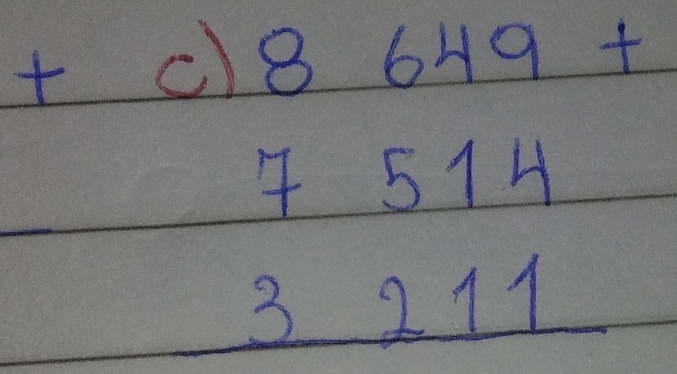 + c) 8 649 +
7 514
3 211